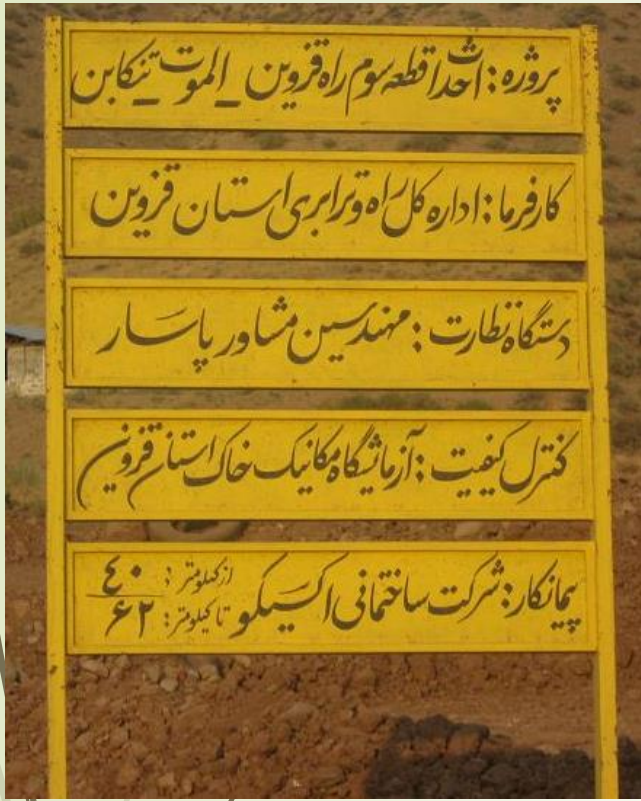 پروژه : احداث قطعه سوم راه قزوین _ الموت _ تنکابن
کارفرما : اداره کل راه و ترابری استان قزوین
دستگاه نظارت : مهندسین مشاور پاسار
کنترل کیفیت : آزمایشگاه مکانیک خاک استان قزوین
پیمانکار : شرکت ساختمانی اکسیکو از کیلومتر : ۴۰
تا کیلومتر : ۶۲